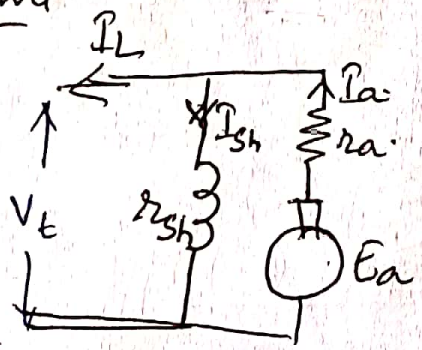 I_L
I_a.
I_sh
r_a.
V_t
r_sh
E_a